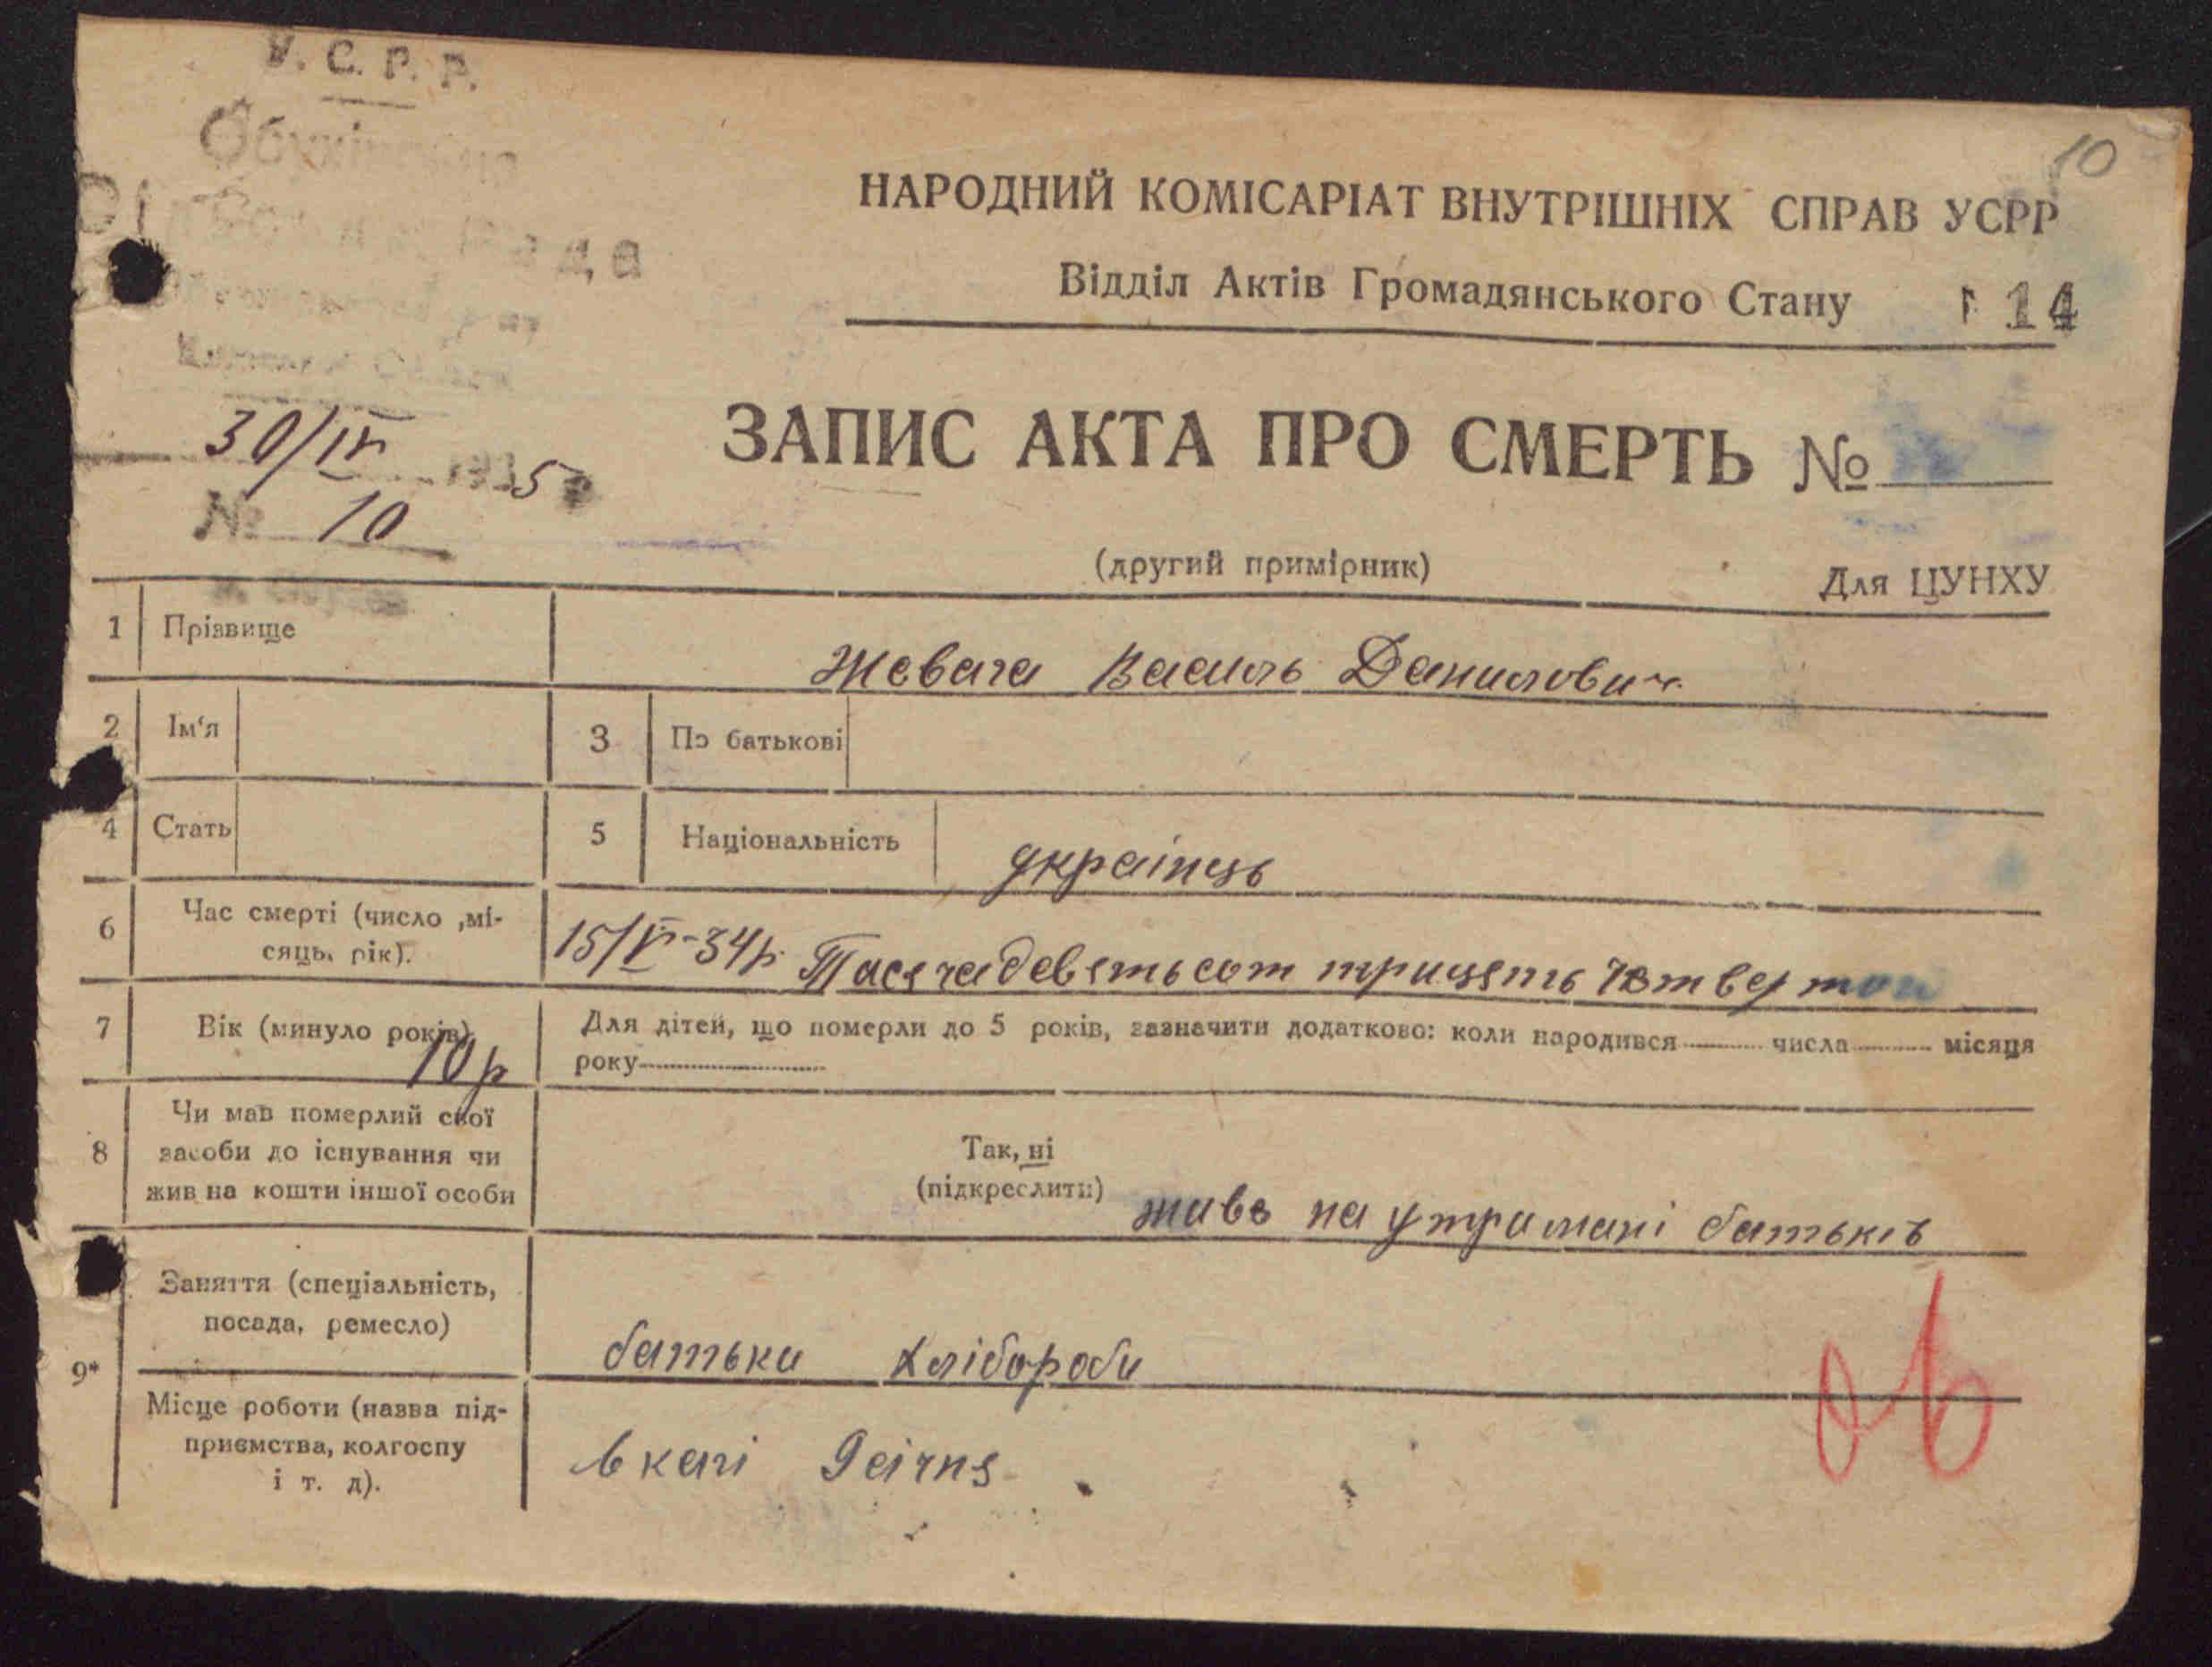 У. С. Р. Р.
10
НАРОДНИЙ КОМІСАРІАТ ВНУТРІШНІХ СПРАВ УСРР
Відділ Актів Громадянського Стану
14
ЗАПИС АКТА ПРО СМЕРТЬ №
30/IV 1935 р
№ 10
(другий примірник)
Для ЦУНХУ
1 Прізвище Жевага Василь Данилович
2 Ім'я 3 По батькові
4 Стать 5 Національність українць
6 Час смерті (число ,мі-
сяць, рік). 15/V-34р. Тисячадевятьсот трицять
7 Вік (минуло років) 10 р Для дітей, що померли до 5 років, зазначити додатково: коли народився числа місяця
року
8 Чи мав померлий свої
засоби до існування чи
жив на кошти іншої особи
Так, ні
(підкреслити) живе на утримані батьків
9* Заняття (спеціальність,
посада, ремесло) батьки хлібороби
Місце роботи (назва під-
приємства, колгоспу
і т. д).